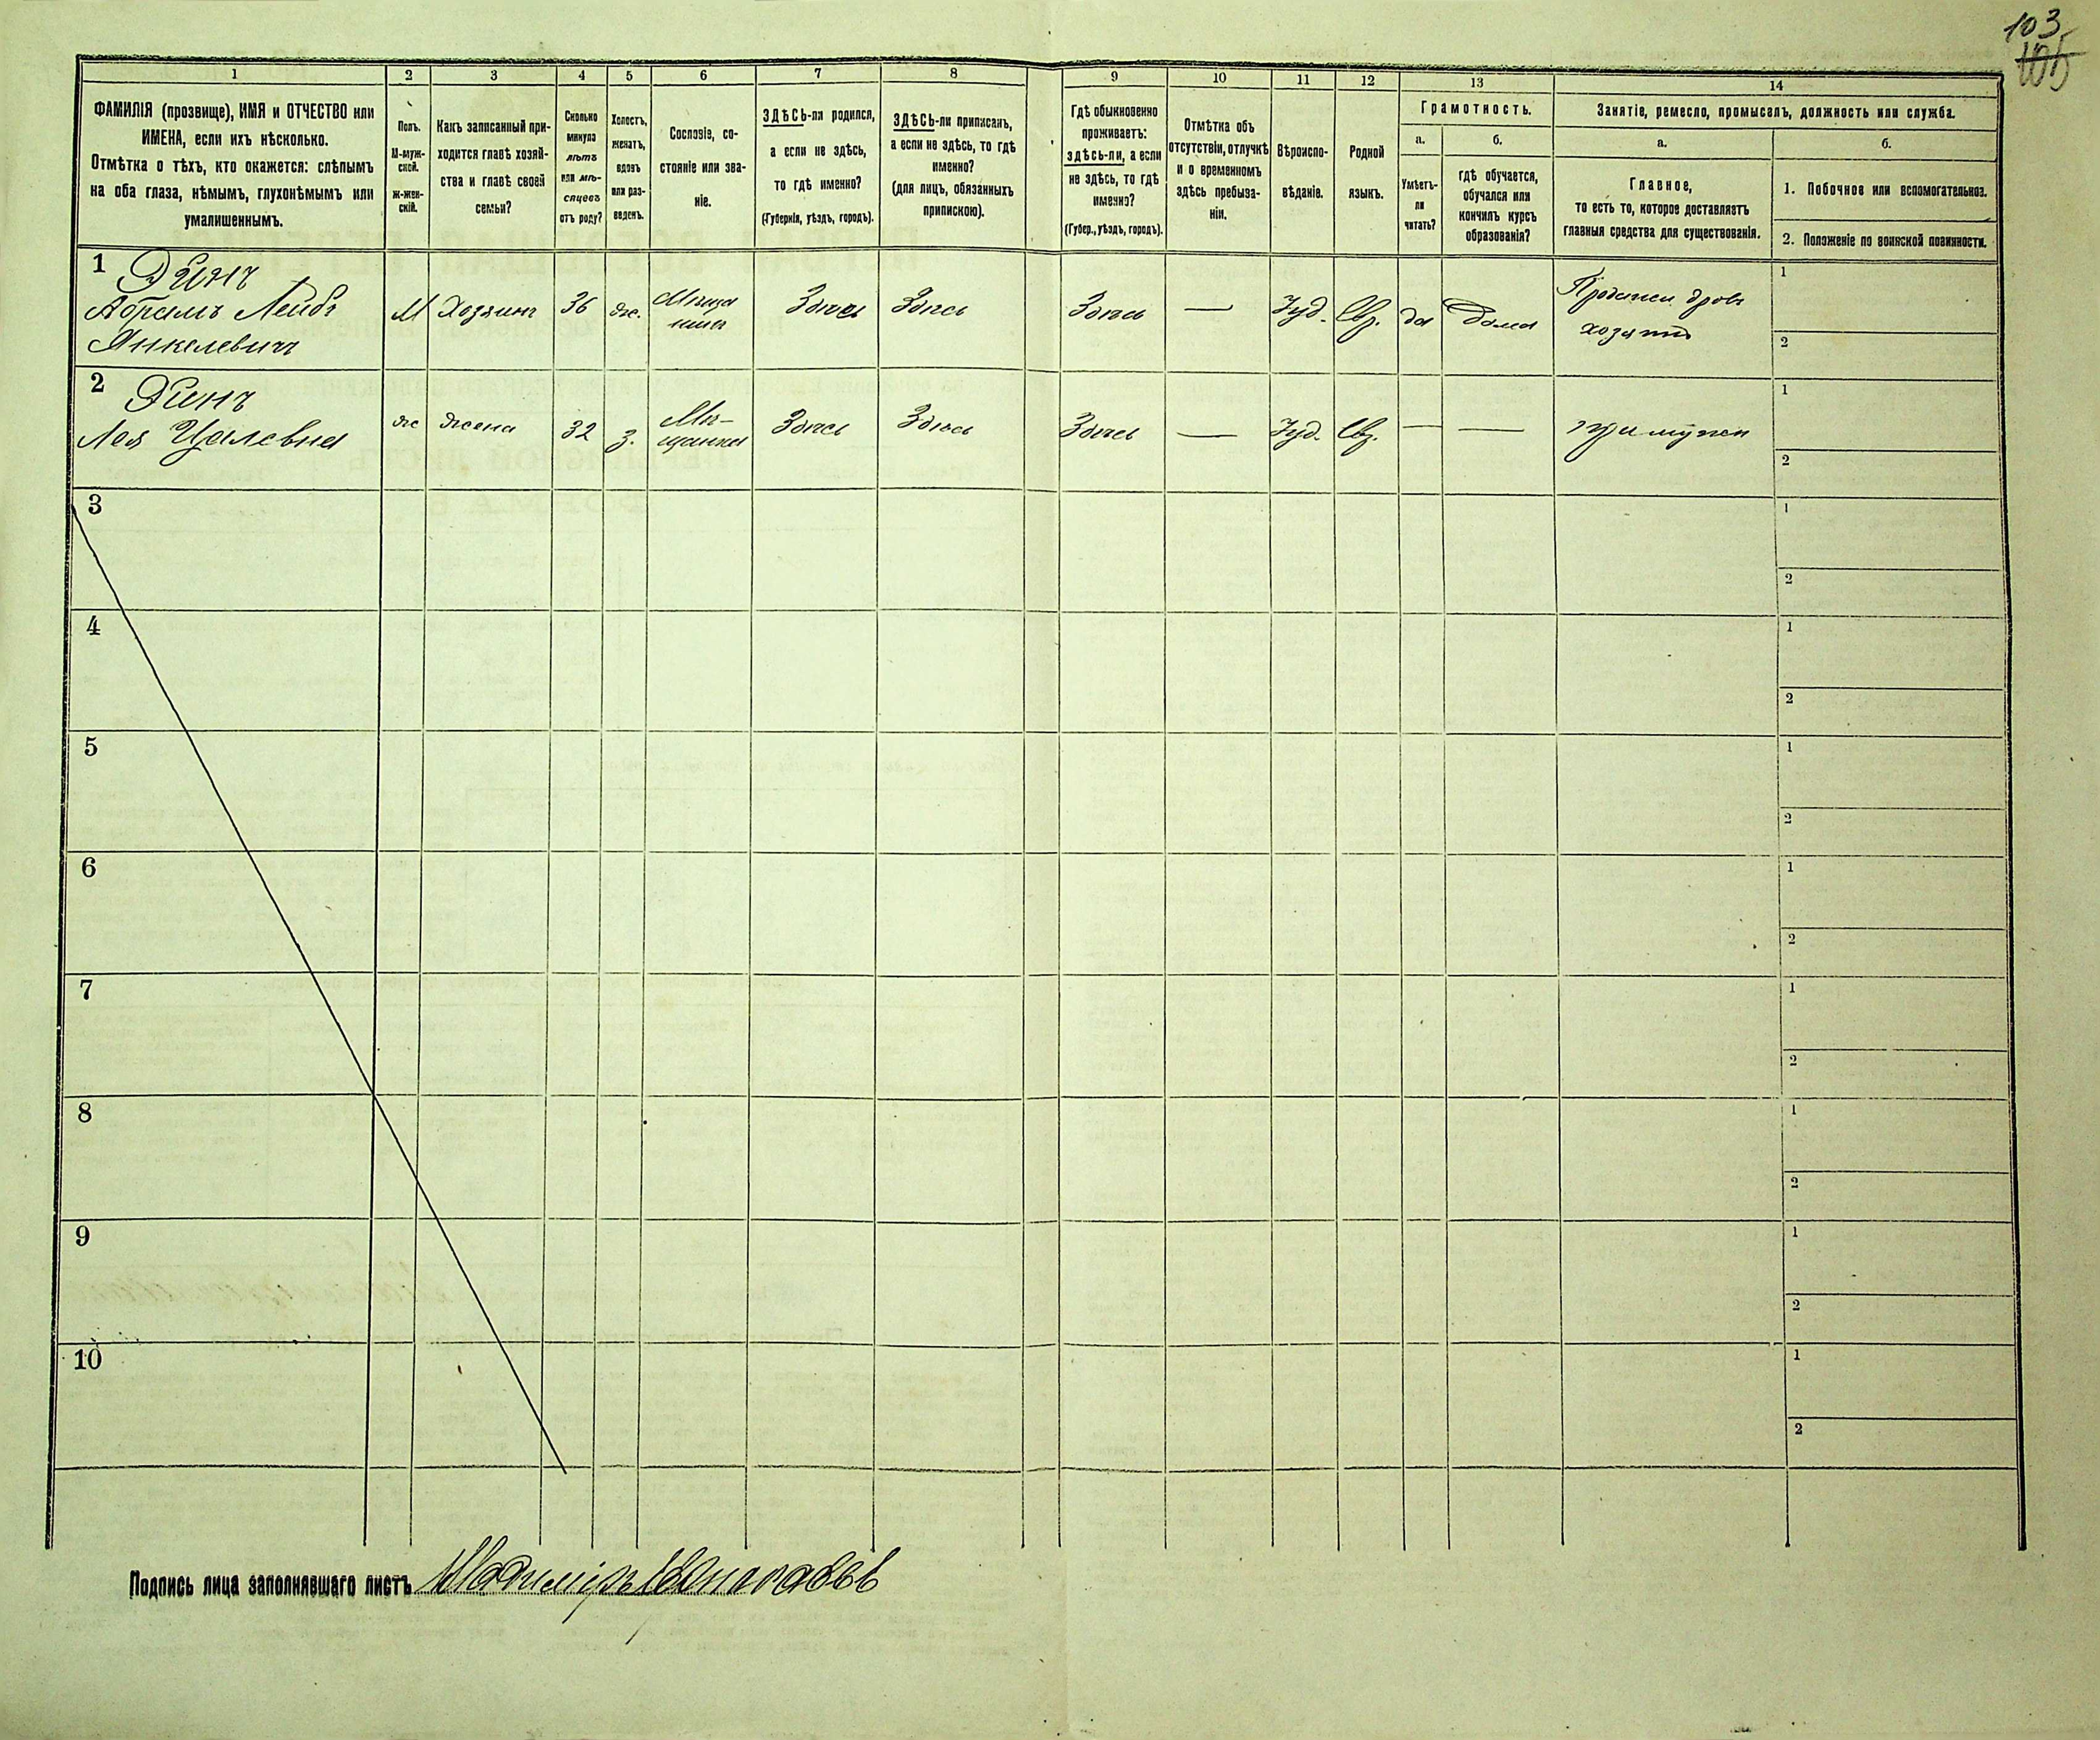 103
105
1 2 3 4 5 6 7 8 9 10 11 12 13 14
ФАМИЛІЯ (прозвище), ИМЯ и ОТЧЕСТВО или
ИМЕНА, если ихъ нѣсколько.
Отмѣтка о тѣхъ, кто окажется: слѣпымъ
на оба глаза, нѣмымъ, глухонѣмымъ или
умалишеннымъ.
Полъ.
М-муж-
ской.
ж-жен-
скій.
Какъ записанный при-
ходится главѣ хозяй-
ства и главѣ своей
семьи?
Сколько
минуло
лѣтъ
или мѣ-
сяцевъ
отъ роду?
Холостъ,
женатъ,
вдовъ
или раз-
веденъ.
Сословіе, со-
стояніе или зва-
ніе.
ЗДѢСЬ-ли родился,
а если не здѣсь,
то гдѣ именно?
(Губернія, уѣздъ, городъ).
ЗДѢСЬ-ли приписанъ,
а если не здѣсь, то гдѣ
именно?
(для лицъ, обязанныхъ
припискою).
Гдѣ обыкновенно
проживаетъ:
здѣсь-ли, а если
не здѣсь, то гдѣ
именно?
(Губер., уѣздъ, городъ).
Отмѣтка объ
отсутствіи, отлучкѣ
и о временномъ
здѣсь пребыва-
ніи.
Вѣроиспо-
вѣданіе.
Родной
языкъ.
Грамотность.
а.
Умѣетъ-
ли
читать?
б.
гдѣ обучается,
обучался или
кончилъ курсъ
образованія?
Занятіе, ремесло, промыселъ, должность или служба.
а.
Главное,
то есть то, которое доставляетъ
главныя средства для существованія.
б.
1. Побочное или вспомогательное.
2. Положеніе по воинской повинности.
1
Эдинъ
Абрамъ Лейбъ
Янкелевичъ
М Хозяинъ 36 же. Мѣща
нинъ
Здѣсь Здѣсь Здѣсь — Іуд. Евр. да Дома
Продажа дровъ
хозяинъ
1
2
2
Эдинъ
Лея Цалевна
же жена 32 з. Мѣ-
щанка
Здѣсь Здѣсь Здѣсь — Іуд. Евр. — — при мужѣ
1
2
3
1
2
4
1
2
5
1
2
6
1
2
7
1
2
8
1
2
9
1
2
10
1
2
Подпись лица заполнявшаго листъ Владиміръ